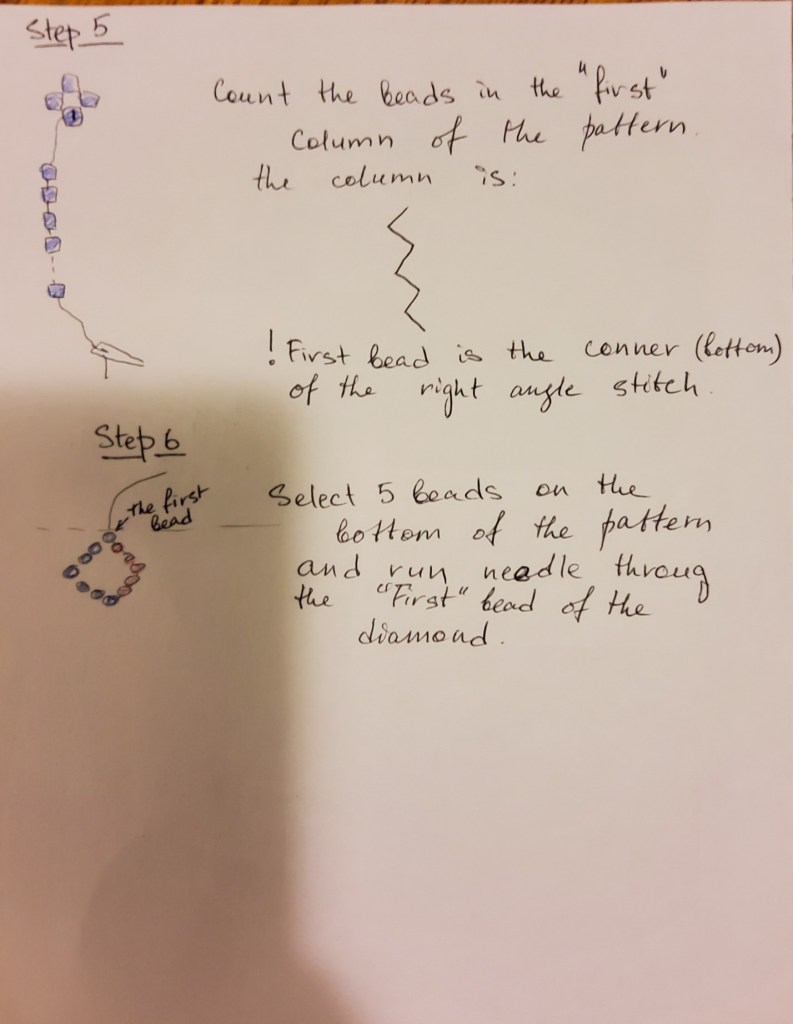 Step 5
Count the beads in the "first"
Column of the pattern.
the column is:
! First bead is the conner (bottom)
of the right angle stitch.
Step 6
the first
bead
Select 5 beads on the
bottom of the pattern
and run needle throug
the "First" bead of the
diamond.